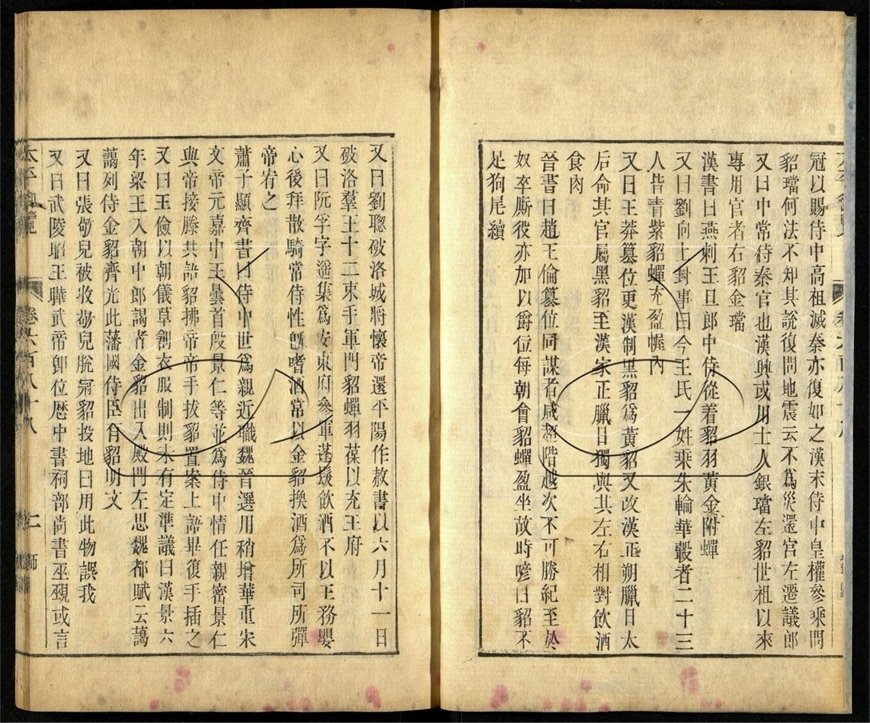 冠以賜侍中高祖滅秦亦復如之漢末侍中皇權參乘問
貂璫何法不知其說復問地震云不爲災還官左遷議郎
又曰中常侍秦官也漢興或用士人銀璫左貂世祖以來
專用宦者右貂金璫
漢書曰燕剌王旦郎中侍從着貂羽黃金附蟬
又曰劉向上封事曰今王氏一姓乘朱輪華轂者二十三
人皆青紫貂蟬充盈幄內
又曰王莽篡位更漢制黑貂爲黃貂又改漢正朔臘日太
后命其官屬黑貂至漢家正臘日獨與其左右相對飲酒
食肉
晉書曰趙王倫篡位同謀者咸超階越次不可勝紀至於
奴卒廝役亦加以爵位每朝會貂蟬盈坐故時諺曰貂不
足狗尾續
又曰劉聰破洛城將懷帝還平陽作赦書以六月十一日
破洛羣土十二束手軍門貂蟬羽葆以充王府
又曰阮孚字遙集爲安東府參軍蓬髮飲酒不以王務嬰
心後拜散騎常侍性嗜酒常以金貂換酒爲所司所彈
帝宥之
蕭子顯齊書曰侍中世爲親近職魏晉選用稍增華重宋
文帝元嘉中王曇首殷景仁等並爲侍中情任親密景仁
與帝接膝共語貂拂帝帝手拔貂置案上語畢復手插之
又曰王儉以朝儀草創衣服制則未有定準議曰漢景六
年梁王入朝中郎謁者金貂出入殿門左思魏都賦云藹
藹列侍金貂齊光此藩國侍臣有貂明文
又曰張敬兒被收敬兒脫冠貂投地曰用此物誤我
又曰武陵昭王曄武帝卽位歷中書祠部尚書巫覡或言
太平御覽 卷六百八十八